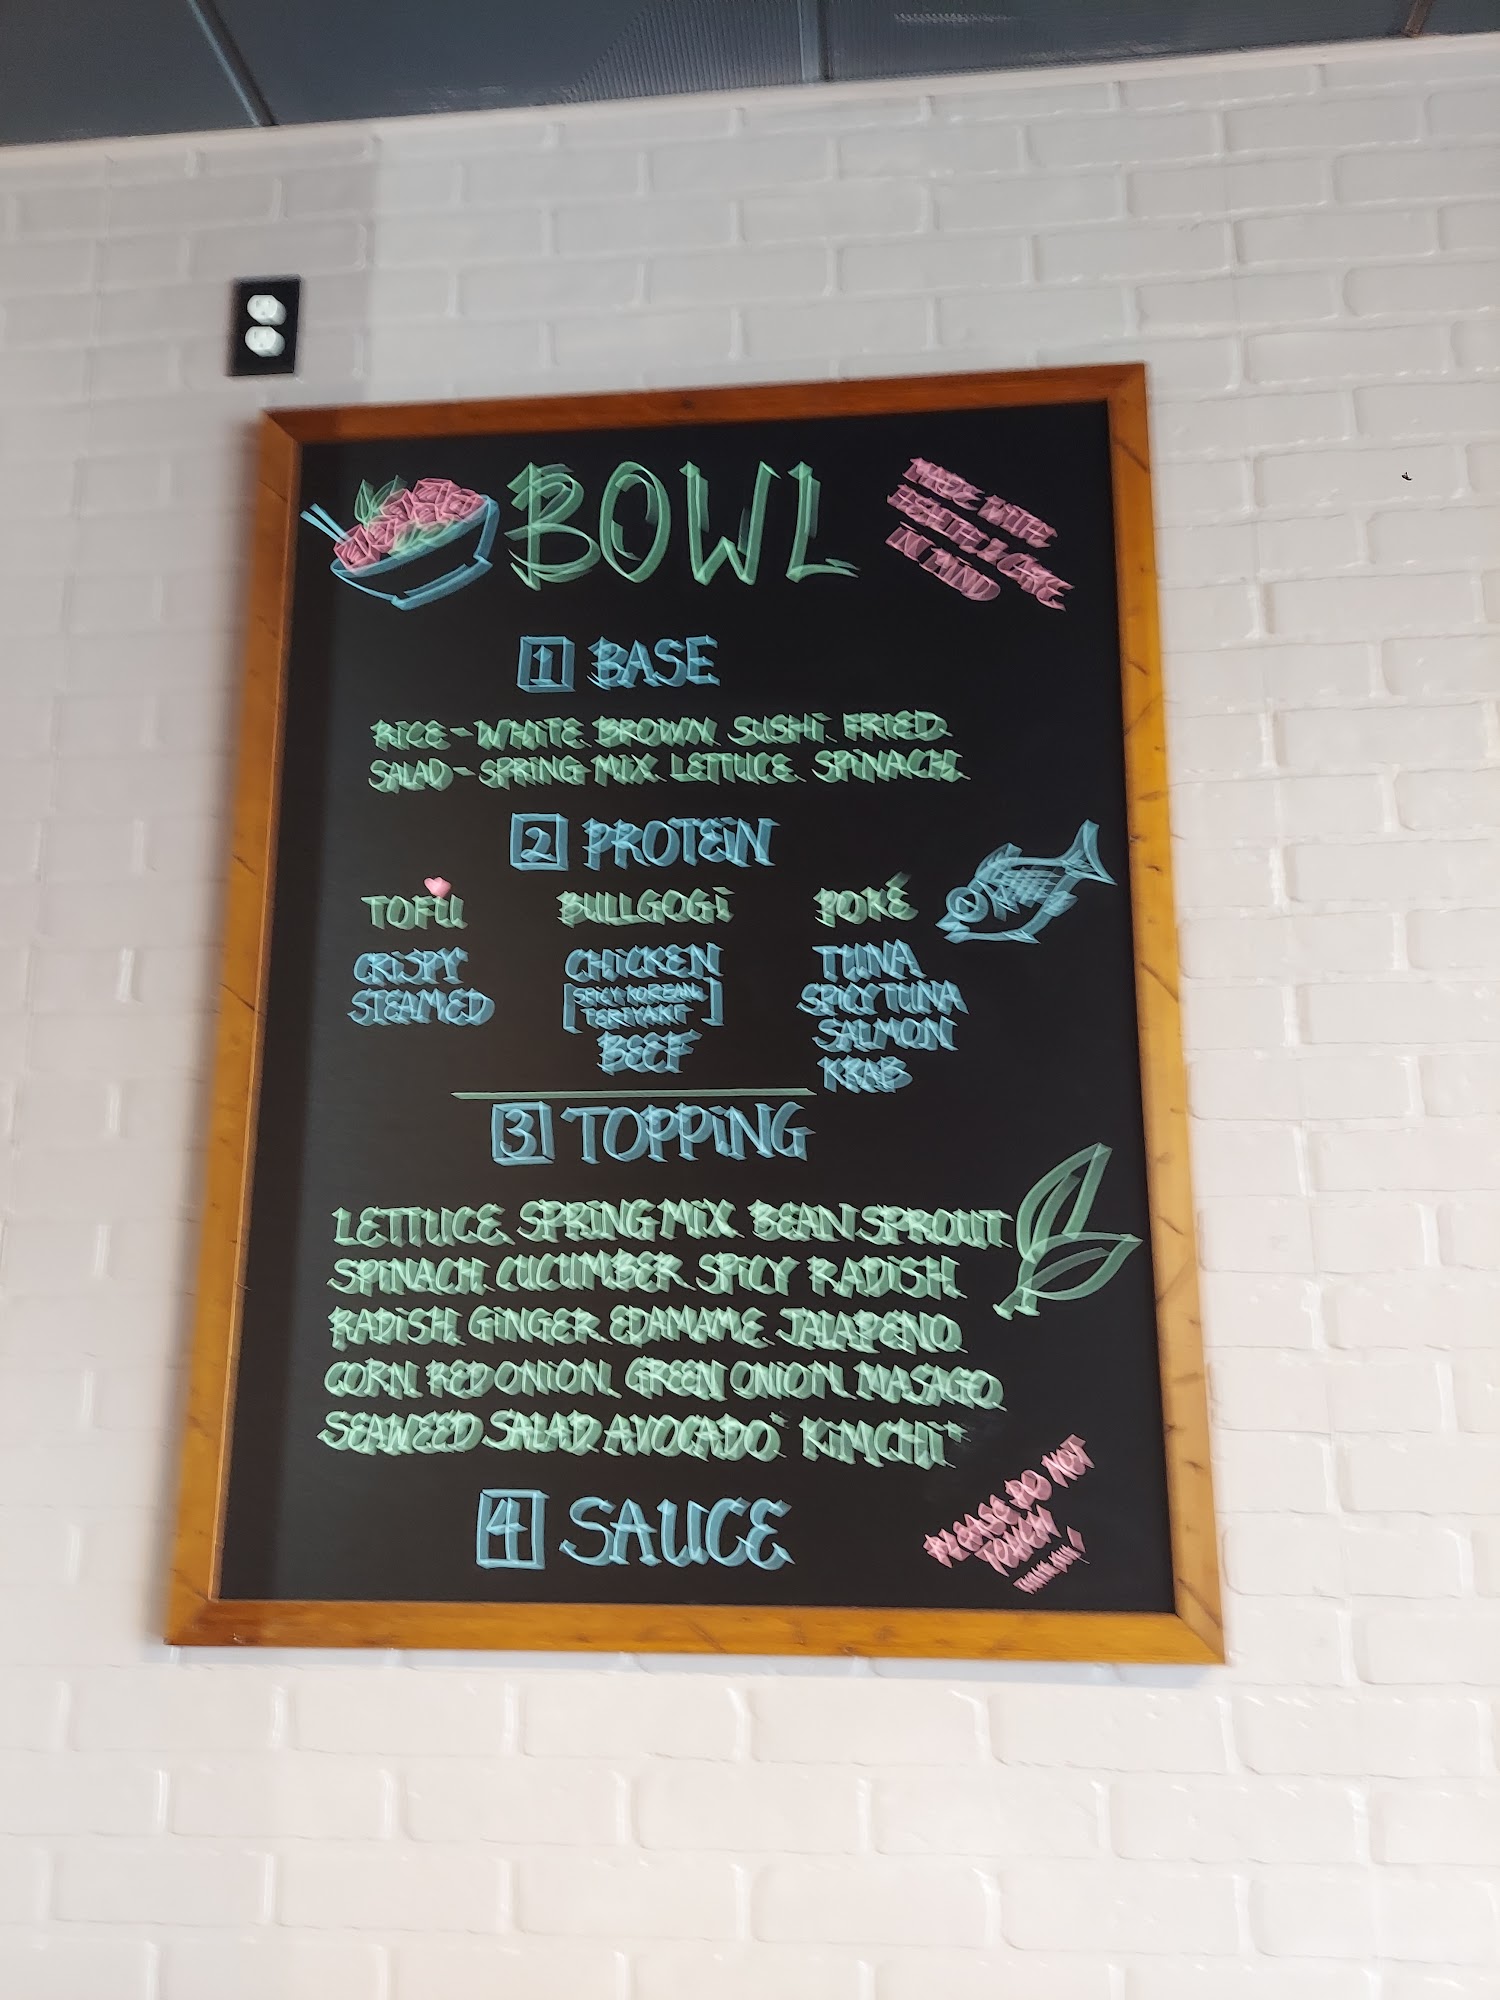 BOWL
MADE WITH
HEALTH & CARE
IN MIND
1 BASE
RICE - WHITE. BROWN. SUSHI. FRIED.
SALAD - SPRING MIX. LETTUCE. SPINACH.
2 PROTEIN
TOFU
CRISPY
STEAMED
BULLGOGI
CHICKEN
[SPICY KOREAN.
TERIYAKI]
BEEF
POKÉ
TUNA
SPICY TUNA
SALMON
KRAB
3 TOPPING
LETTUCE. SPRING MIX. BEAN SPROUT
SPINACH. CUCUMBER. SPICY RADISH.
RADISH. GINGER. EDAMAME. JALAPENO.
CORN. RED ONION. GREEN ONION. MASAGO.
SEAWEED SALAD. AVOCADO* KIMCHI*
4 SAUCE
PLEASE DO NOT
TOUCH!
THANK YOU!